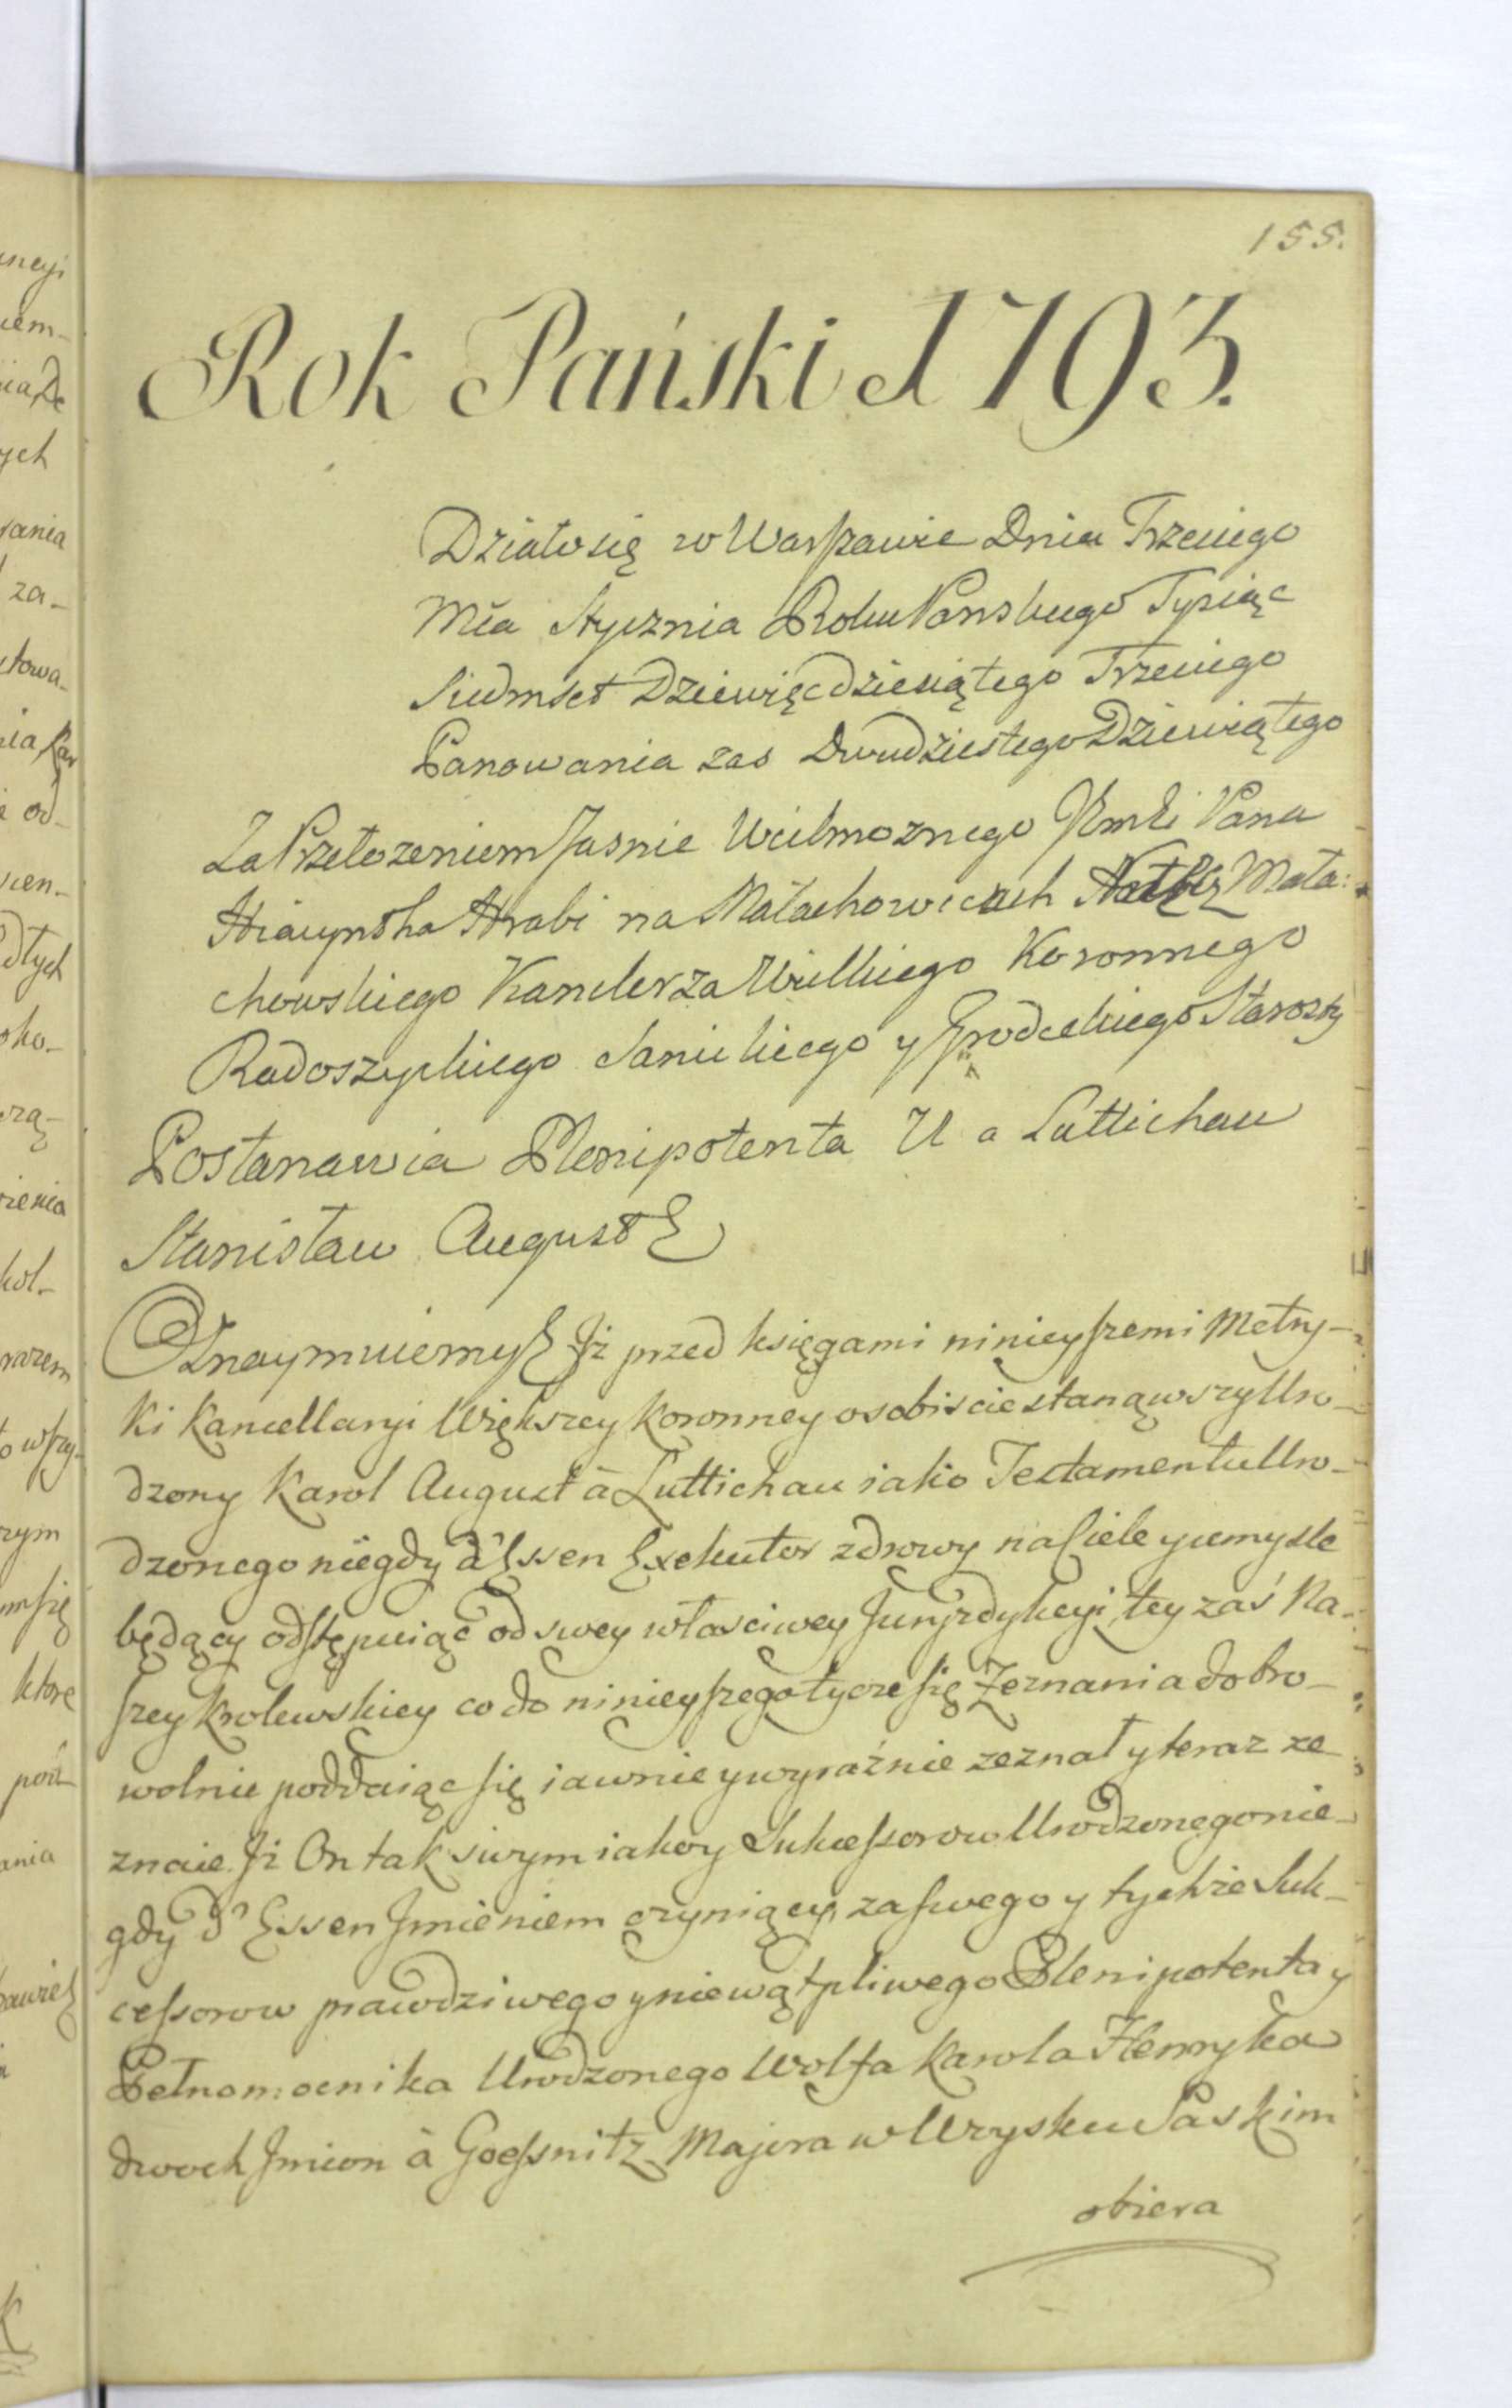 155.
Rok Pański 1793.
Działo się w Warszawie Dnia Trzeciego
Mca Stycznia Roku Panskiego Tysiąc
Siedmset Dziewięcdziesiątego Trzeciego
Panowania zas Dwudziestego Dziewiątego
Za Przełozeniem Jasnie Wielmoznego Jmci Pana
Hiacyntha Hrabi na Małachowicach Nałęcz Mała:
chowskiego Kanclerza Wielkiego Koronnego
Radoszyckiego Sanickiego y Grodeckiego Starosty
Postanawia Plenipotenta U a Luttichau
Stanisław August &
Oznaymuiemy & Iż przed księgami ninieyszemi Metry-
ki Kancellaryi Większey Koronney osobiscie stanąwszy Uro-
dzony Karol August à Luttichau iako Testamentu Uro-
dzonego niegdy d'Essen Exekutor zdrowy na Ciele y umysle
będący odstępuiąc od swey własciwey Juryzdykcyi, tey zaś Na-
szey Krolewskiey co do ninieyszego tycze się Zeznania dobro-
wolnie poddaiąc się iawnie y wyraźnie zeznał y teraz ze-
znaie Iż On tak swym iako y Sukcessorow Urodzonego nie-
gdy d'Essen Jmieniem czyniący, za swego y tychże Suk-
cessorow prawdziwego y niewątpliwego Plenipotenta y
Pełnomocnika Urodzonego Wolfa Karola Henryka
dwoch Jmion à Goessnitz Majora w Woysku Saskim
obiera
ncyi
iem-
ych
rania
za-
towa-
nia
od-
ien-
dtych
oko-
rzą-
zienia
kol-
razem
o wszy-
rym
m się
ktore
ania